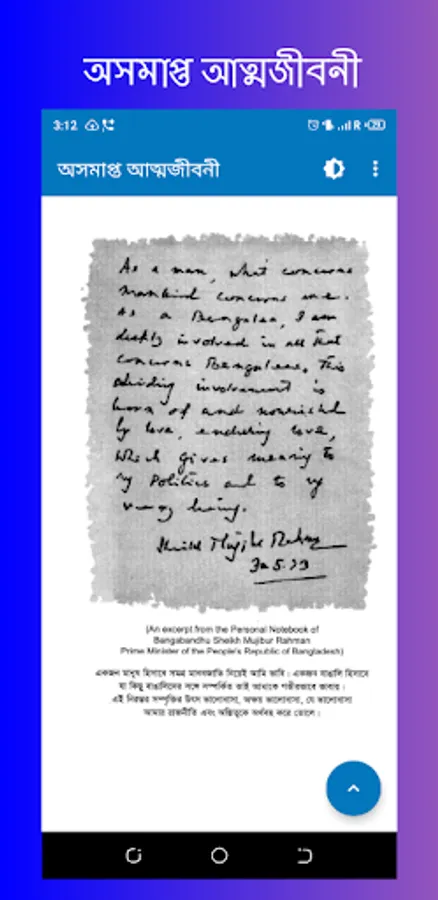 অসমাপ্ত আত্মজীবনী
3:12
R 29
অসমাপ্ত আত্মজীবনী
As a man, what concerns
mankind concerns me.
As a Bengalee, I am
deeply involved in all that
concerns Bengalees. This
abiding involvement is
born of and nourished
by love, enduring love,
which gives meaning to
my Politics and to my
very being.
Sheikh Mujibur Rahman
30.5.73
(An excerpt from the Personal Notebook of
Bangabandhu Sheikh Mujibur Rahman
Prime Minister of the People's Republic of Bangladesh)
একজন মানুষ হিসাবে সমগ্র মানবজাতি নিয়েই আমি ভাবি। একজন বাঙালি হিসাবে
যা কিছু বাঙালিদের সঙ্গে সম্পর্কিত তাই আমাকে গভীরভাবে ভাবায়।
এই নিরন্তর সম্পৃক্তির উৎস ভালোবাসা, অক্ষয় ভালোবাসা, যে ভালোবাসা
আমার রাজনীতি এবং অস্তিত্বকে অর্থবহ করে তোলে।